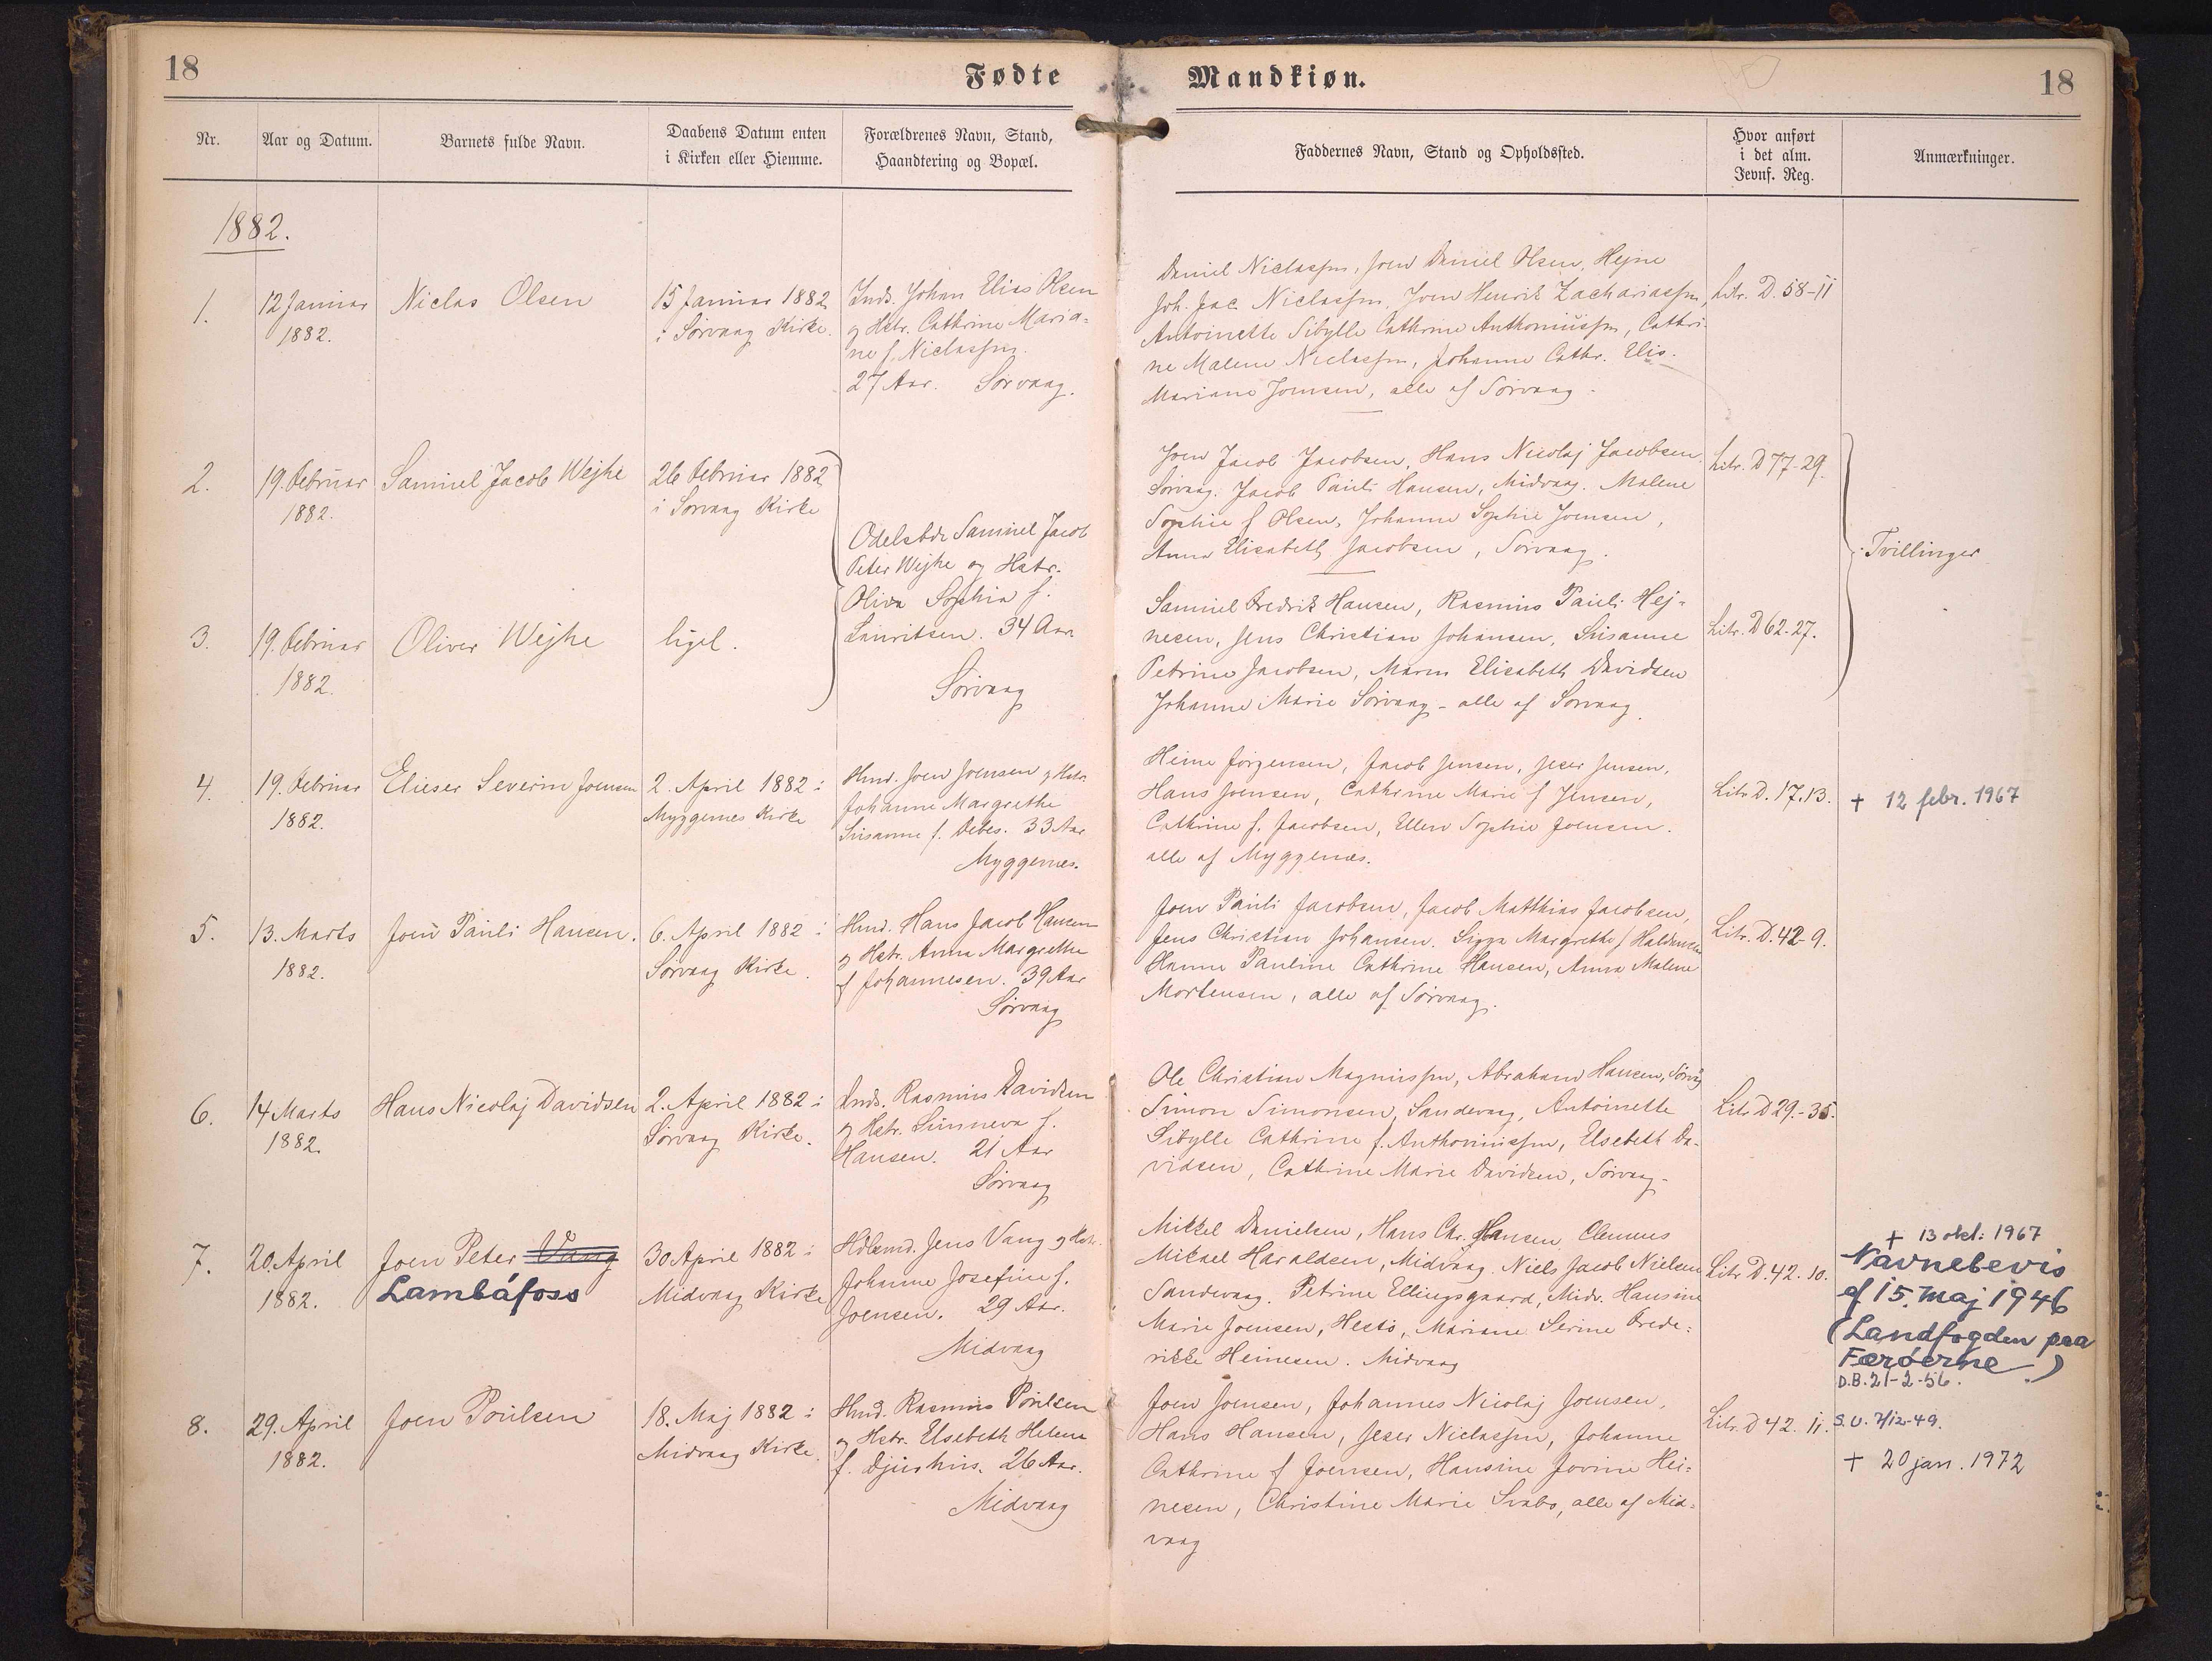 18
Fødte
Mandkiøn.
18
Nr.
Aar og Datum.
Barnets fulde Navn.
Daabens Datum enten
i Kirken eller Hiemme.
Forældrenes Navn, Stand,
Haandtering og Bopæl.
Faddernes Navn, Stand og Opholdssted.
Hvor anført
i det alm.
Jevnf. Reg.
Anmærkninger.
1882.
1.
12 Januar
1882.
Niclas Olsen
15 Januar 1882
i Sørvaag Kirke.
Inds. Johan Elias Olsen
og Hstr. Cathrine Maria-
ne f. Niclassen.
27 Aar. Sørvaag.
Daniel Niclassen, Joen Daniel Olsen, Hejne
Joh. Jac. Niclassen, Joen Henrik Zachariassen,
Antoinette Sibylle Cathrine Anthoniussen, Cathri-
ne Malene Niclassen, Johanne Cathr. Elis.
Mariane Joensen, alle af Sørvaag.
Litr. D. 58-11
2.
19. Februar
1882.
Samuel Jacob Wejhe
26 Februar 1882
i Sørvaag Kirke
Odelsbdr Samuel Jacob
Peter Wejhe og Hstr.
Oliva Sophia f.
Lauritsen. 34 Aar
Sørvaag
Joen Jacob Jacobsen, Hans Nicolaj Jacobsen,
Sørvaag. Jacob Pauli Hansen, Midvaag. Malene
Sophie f Olsen, Johanne Sophie Joensen,
Anna Elisabeth Jacobsen, Sørvaag.
Litr. D 77-29.
Tvillinger
3.
19. Februar
1882.
Oliver Wejhe
ligel.
Samuel Fredrik Hansen, Rasmus Pauli Hej-
nesen, Jens Christian Johansen, Susanne
Petrine Jacobsen, Maren Elisabeth Davidsen
Johanne Marie Sørvaag - alle af Sørvaag.
Litr. D 62-27.
4.
19. Februar
1882.
Elieser Severin Joensen
2. April 1882 i
Myggenes Kirke
Hmd. Joen Joensen og Hstr.
Johanne Margrethe
Susanne f. Debes. 33 Aar
Myggenæs.
Heine Jørgensen, Jacob Jensen, Jeser Jensen,
Hans Joensen, Cathrine Marie f Jensen,
Cathrine f. Jacobsen, Ellen Sophie Joensen.
alle af Myggenæs.
Litr D. 17.13.
+ 12 febr. 1967
5.
13. Marts
1882.
Joen Pauli Hansen.
6. April 1882 i
Sørvaag Kirke.
Hmd. Hans Jacob Hansen
og Hstr. Anna Margrethe
f Johannesen. 39 Aar
Sørvaag
Joen Pauli Jacobsen, Jacob Matthias Jacobsen,
Jens Christian Johansen. Sigga Margrethe f Haldansen
Hanne Pauline Cathrine Hansen, Anna Malene
Mortensen, alle af Sørvaag.
Litr. D. 42-9.
6.
14 Marts
1882.
Hans Nicolaj Davidsen
2. April 1882 i
Sørvaag Kirke.
Inds. Rasmus Davidsen
og Hstr. Sunneva f.
Hansen. 21 Aar
Sørvaag
Ole Christian Magnussen, Abraham Hansen, Sørvag
Simon Simonsen, Sandevaag, Antoinette
Sibylle Cathrine f. Anthoniussen, Elsebeth Da-
vidsen, Cathrine Marie Davidsen, Sørvaag.
Litr D 29.-35.
7.
20. April
1882.
Joen Peter Vang
Lambáfoss
30 April 1882 i
Midvaag Kirke
Hdlsmd. Jens Vang og Hstr.
Johanne Josefine f.
Joensen. 29 Aar.
Midvaag
Mikkel Danielsen, Hans Chr. Hansen Clemens
Mikael Haraldsen, Midvaag. Niels Jacob Nielsen
Sandevaag. Petrine Ellingsgaard, Midv. Hansine
Marie Joensen, Hestø, Mariane Serine Frede-
rikke Heinesen. Midvaag
Litr D. 42. 10.
+ 13 okt. 1967
Navnebevis
af 15. Maj 1946
(Landfogden paa
Færøerne)
D.B. 21-2-56.
8.
29. April
1882.
Joen Poulsen
18. Maj 1882 i
Midvaag Kirke.
Hmd. Rasmus Poulsen
og Hstr. Elsebeth Helene
f. Djurhus. 26 Aar.
Midvaag
Joen Joensen, Johannes Nicolaj Joensen,
Hans Hansen, Jeser Niclassen, Johanne
Cathrine f Joensen, Hansine Jovine Hei-
nesen, Christine Marie Svabo, alle af Mid-
vaag
Litr. D 42. 11.
S.U. 7/12-49.
+ 20 jan. 1972